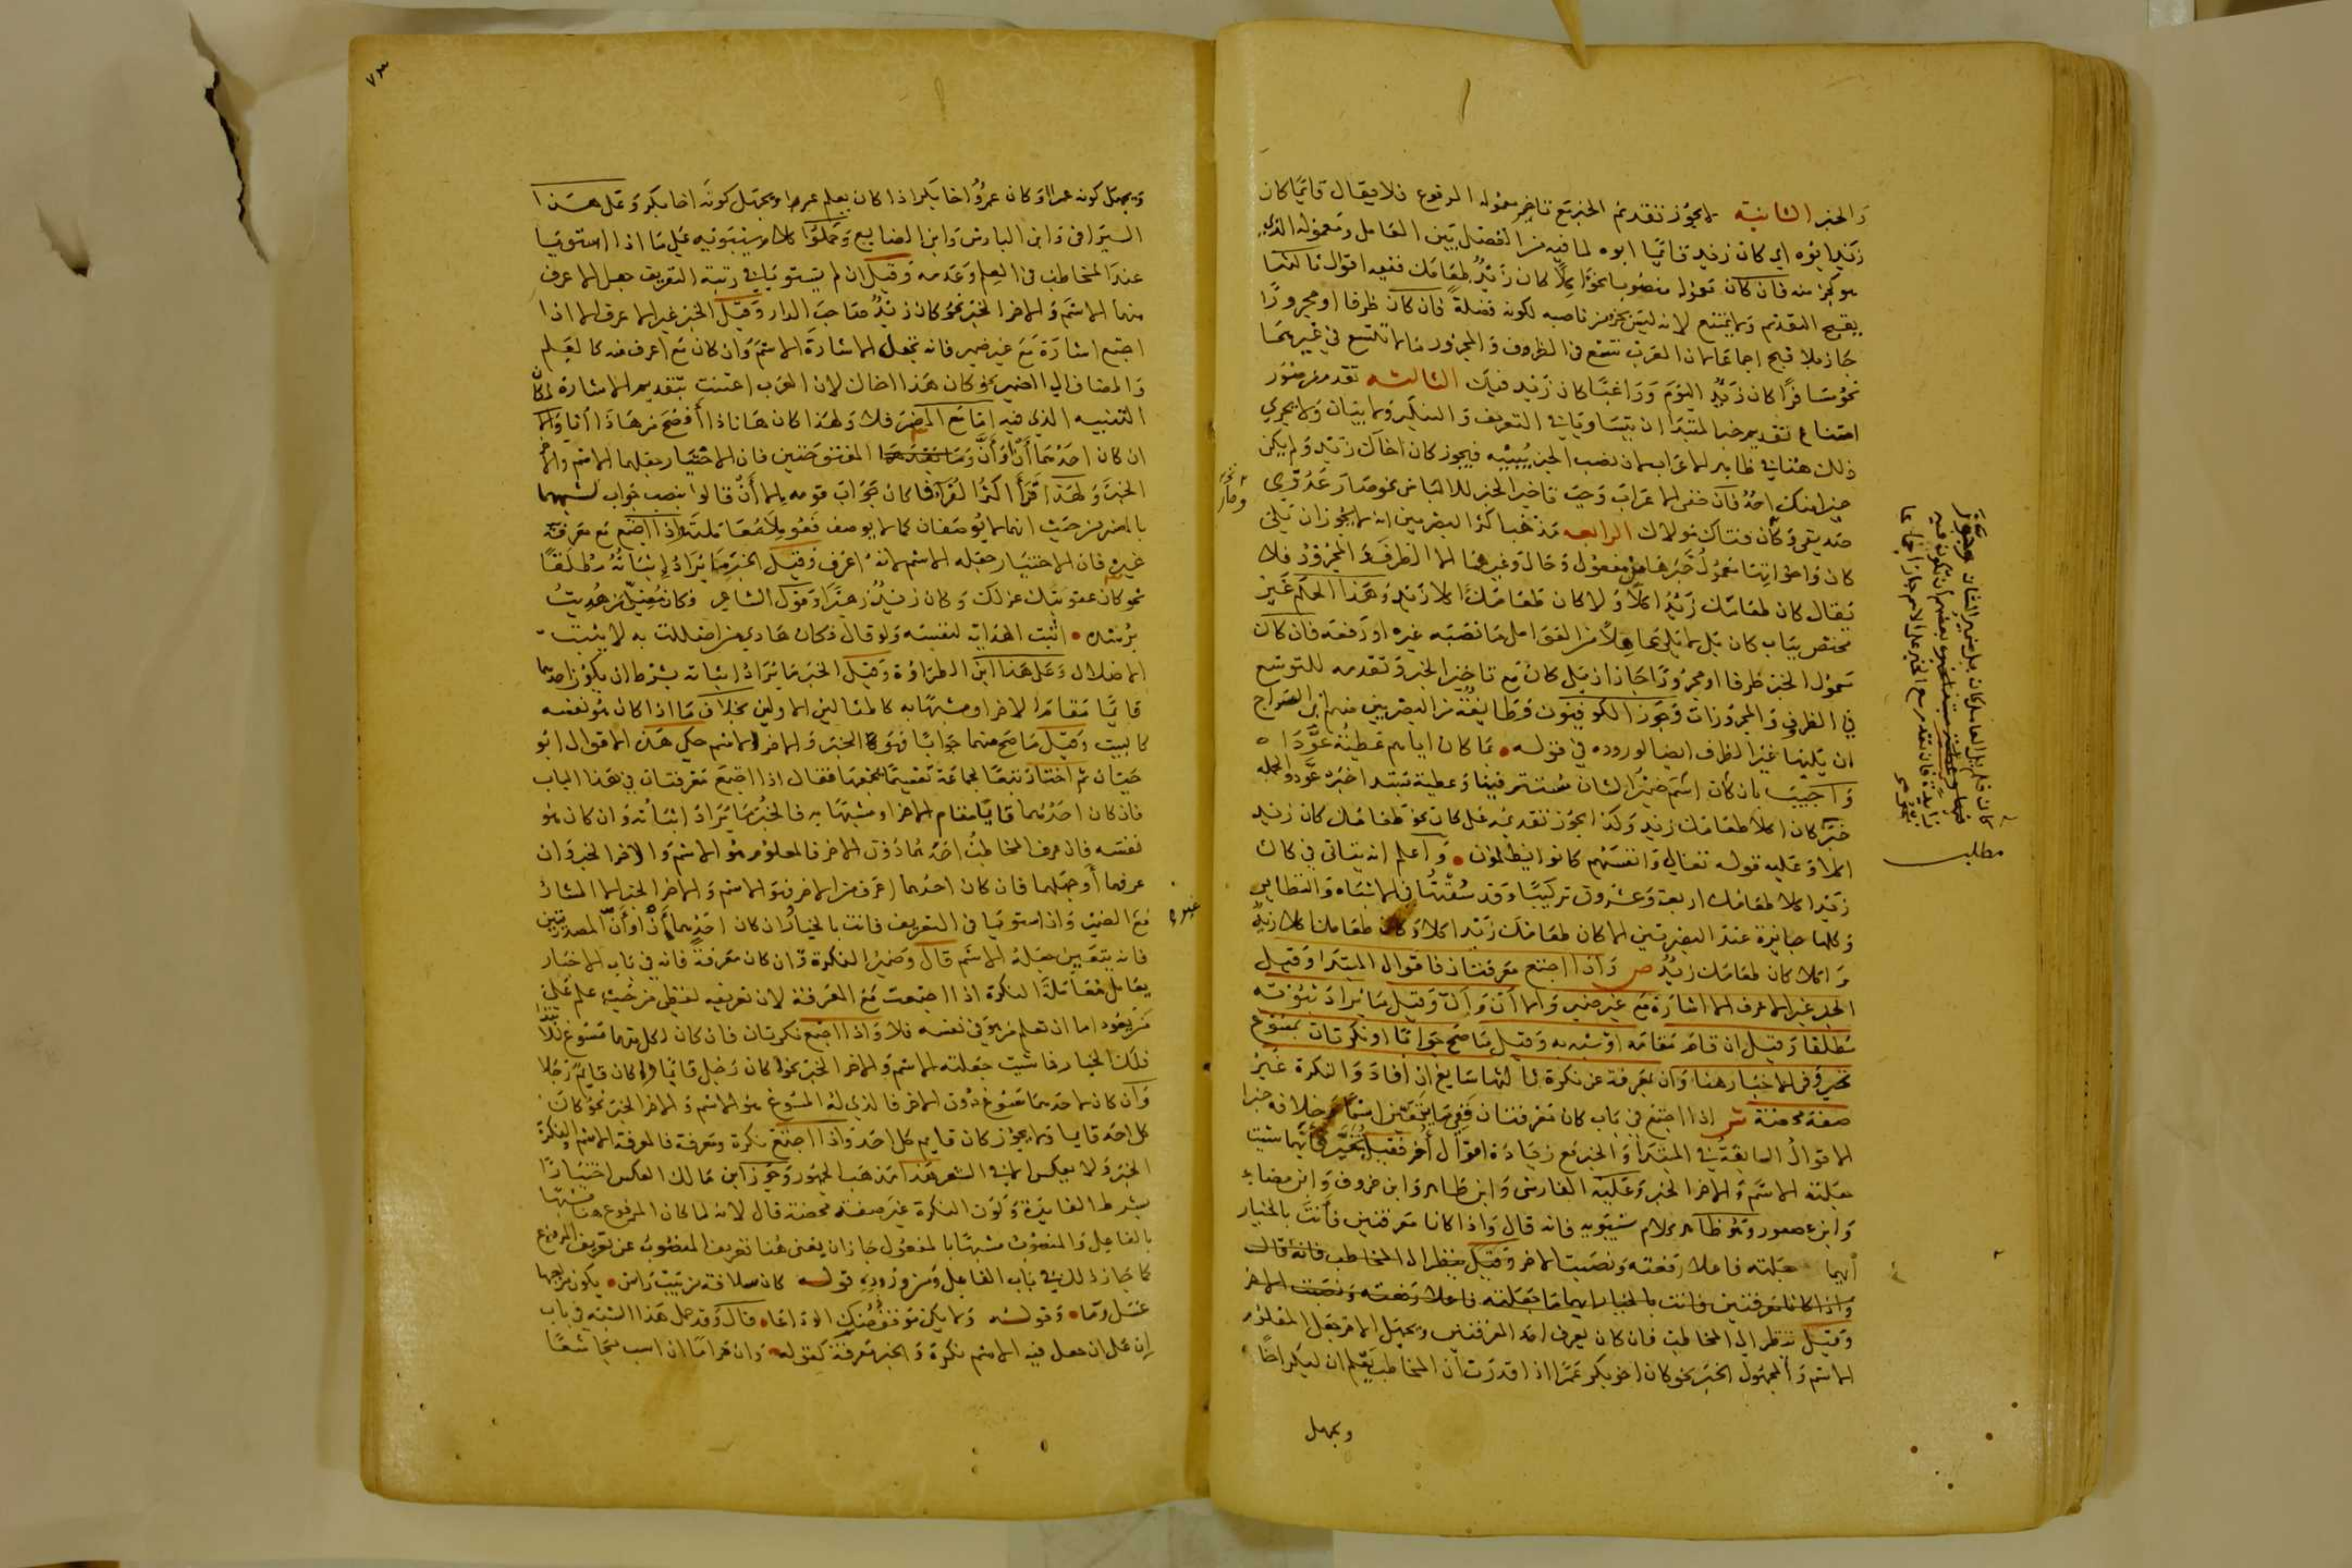 والخبر الثانية لا يجوز تقديم الخبر مع تاخير معموله المرفوع فلا يقال قائما كان
زيد ابوه اي كان زيد قائما ابوه لما فيه من الفصل بين العامل ومعموله الذي
هو كجزء منه فان كان معموله منصوبا نحو اكلا كان زيد طعامك ففيه اقوال ثالثها
يقبح التقديم ولا يمتنع لانه ليس كجزء من ناصبه لكونه فضلة فان كان ظرفا او مجرورا
جاز بلا قبح اجماعا لان العرب تتسع في الظروف والمجرور ما لا تتسع في غيرهما
نحو مسافرا كان زيد اليوم وراغبا كان زيد فيك الثالثة تقدم من صور
امتناع تقديم خبر المبتدا ان يتساويا في التعريف والتنكير ولا بيان ولا يجري
ذلك هنا في ظاهر الاعراب لان نصب الخبر يبينه فيجوز كان اخاك زيد ولم يكن
خيرا منك احد فان خفي الاعراب وجب تاخير الخبر للالباس نحو صار عدوي
صديقي وكان فتاك مولاك الرابعة مذهب اكثر البصريين انه لا يجوز ان يلي
كان واخواتها معمول خبرها من مفعول وحال وغيرهما الا الظرف والمجرور فلا
يقال كان طعامك زيد اكلا ولا كان طعامك اكلا زيد وهذا الحكم غير
مختص بباب كان بل لا يلي عاملا من العوامل ما نصبه غيره او رفعه فان كان
معمول الخبر ظرفا او مجرورا جاز ان يلي كان مع تاخير الخبر وتقدمه للتوسع
في الظروف والمجرورات وجوز الكوفيون وطايفة من البصريين منهم ابن السراج
ان يليها غير الظرف ايضا لوروده في قوله بما كان اياهم عطية عودا
واجيب بان كان اسم ضمير الشان مستتر فيها وعطية مبتدا خبره عود والجملة
خبر كان اكلا طعامك زيد وكذا يجوز تقديمه على كان نحو طعامك كان زيد
اكلا وعليه قوله تعالى وانفسهم كانوا يظلمون واعلم انه يتاتى في كان
زيد اكلا طعامك اربعة وعشرون تركيبا وقد سقتها في الاشباه والنظاير
وكلها جايزة عند البصريين الا كان طعامك زيد اكلا وكان طعامك اكلا زيد
واكلا كان طعامك زيد ص واذا اجتمع معرفتان فاقوال المبتدا وقيل
الخبر غير الاعرف الا اشارة مع غير ضمير والا أن وأنّ وقيل ما يراد ثبوته
مطلقا وقيل ان قام مقامه او شبه به وقيل ما صح جوابا او نكرتان بمسوغ
تخير وفي الاخبار هنا وان بمعرفة عن نكرة ثالثها سايغ ان افاد والنكرة غير
صفة محضة ش اذا اجتمع في باب كان معرفتان ففيما يتعين اسما وخلافه خبرا
الاقوال السابقة في المبتدا والخبر مع زيادة اقوال أخر فقيل يتخير فايهما شيت
جعلته الاسم والاخر الخبر وعليه الفارسي وابن طاهر وابن خروف وابن مضاء
وابن عصفور وهو ظاهر كلام سيبويه فانه قال واذا كانا معرفتين فانت بالخيار
ايهما جعلته فاعلا رفعته ونصبت الاخر وقيل ينظر الى المخاطب فانه قال
واذا كانا معرفتين فانت بالخيار ايهما ما جعلته فاعلا رفعته ونصبت الاخر
وقيل ننظر الى المخاطب فان كان يعرف احد المعرفتين ويجهل الاخر جعل المعلوم
الاسم والمجهول الخبر نحو كان اخو بكر عمرا اذا قدرت ان المخاطب يعلم ان لبكر اخا
ويجهل
كان فلم يل العامل كان بل ضمير الشان وجوز
بعضهم ان تكون فيه
زايدة فان تقدم مع الخبر على الاسم جاز اجماعا
مطلب
٧٣
ويجهل كونه عمرا او كان عمرو اخا بكر اذا كان يعلم عمرا ويجهل كونه اخا بكر وعلى هذا
السيرافي وابن الباذش وابن الضايع وحملوا كلام سيبويه على ما اذا استويا
عند المخاطب في العلم وعدمه وقيل ان لم يستويا في رتبة التعريف جعل الاعرف
منهما الاسم والاخر الخبر نحو كان زيد صاحب الدار وقيل الخبر غير الاعرف الا اذا
اجتمع اشارة مع غير ضمير فانه تجعل الاشارة الاسم وان كان مع اعرف منه كالعلم
والمضاف الى الضمير نحو كان هذا اخاك لان العرب اعتنت بتقديم الاشارة لمكان
التنبيه الذي فيه اما مع المضمر فلا ولهذا كان هاناذا أفصح من هاذا أنا والا
ان كان احدهما أن او أنّ المفتوحتين فان الاختيار جعلها الاسم والاخر
الخبر ولهذا قرأ اكثر القراء فما كان جواب قومه الا أن قالوا بنصب جواب لشبهها
بالمضمر من حيث انها لا توصفان كما لا يوصف فعومل معاملته اذا اجتمع مع معرفة
غيره فان الاختيار جعله الاسم لانه اعرف وقيل الخبر ما يراد اثباته مطلقا
نحو كان عقوبتك عزلك وكان زيد زهيرا وقول الشاعر فكان مضلي من هديت
برشده اثبت الهداية لنفسه ولو قال فكان هادي من اضللت به لاثبت
الاضلال وعلى هذا ابن الطراوة وقيل الخبر ما يراد اثباته بشرط ان يكون احدهما
قائما مقام الاخر او مشبها به كالمثالين الاولين بخلاف ما اذا كان هو نفسه
كالبيت وقيل ما صح منهما جوابا فهو الخبر والاخر الاسم حكى هذه الاقوال ابو
حيان ثم اختار تبعا لجماعة تقسيما يجمعها فقال اذا اجتمع معرفتان في هذا الباب
فان كان احدهما قايما مقام الاخر او مشبها به فالخبر ما يراد اثباته وان كان هو
نفسه فان عرف المخاطب احدهما دون الاخر فالمعلوم هو الاسم والاخر الخبر وان
عرفهما أو جهلهما فان كان احدهما اعرف من الاخر فهو الاسم والاخر الخبر الا المشار
مع الضمير وان استويا في التعريف فانت بالخيار وان كان احدهما أن او أنّ المصدريتين
فانه يتعين جعله الاسم قال وضمير النكرة وان كان معرفة فانه في باب الاخبار
يعامل معاملة النكرة اذا اجتمعت مع المعرفة لان تعريفه لفظي من حيث علم على
من يعود اما ان تعلم من هو في نفسه فلا واذا اجتمع نكرتان فان كان لكل منهما مسوغ للابتدا
فلك الخيار فما شيت جعلته الاسم والاخر الخبر نحو أكان رجل قائما او أكان قايم رجلا
وان كان لاحدهما مسوغ دون الاخر فالذي له المسوغ هو الاسم والاخر الخبر نحو كان
كل احد قايما ولا يجوز كان قايم كل احد واذا اجتمع نكرة ومعرفة فالمعرفة الاسم والنكرة
الخبر ولا يعكس الا في الشعر هذا مذهب الجمهور وجوز ابن مالك العكس اختيارا
بشرط الفايدة وكون النكرة غير صفة محضة قال لانه لما كان المرفوع هنا مشبها
بالفاعل والمنصوب مشبها بالمفعول جاز ان يغني هنا تعريف المنصوب عن تعريف المرفوع
كما جاز ذلك في باب الفاعل ومن وروده قوله كان سلافة من بيت راس يكون مزاجها
عسل وماء وقوله ولا يك موقف منك الوداعا قال وقد حمل هذا الشبه في باب
إن على ان جعل فيه الاسم نكرة والخبر معرفة كقوله وان حراما ان اسب مجاشعا
غيره